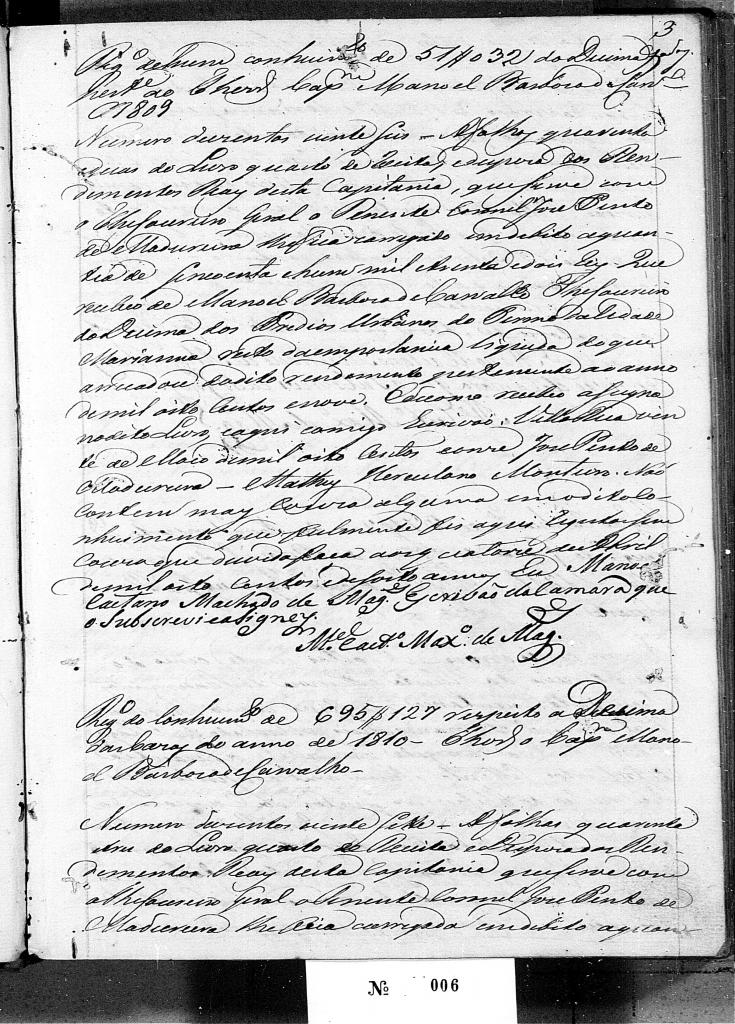 3
Rego de hum conhecimto de 51$032 da Decima
pertce ao Thezro Capm Manoel Barboza de Carvo
1809
Numero duzentos vinte seis = Afolhas quarenta
e duas do Livro quarto de Receita e despeza dos Ren-
dimentos Reays desta Capitania, que serve com
o Thesoureiro Geral o Tenente Coronel Joze Pinto
de Madureira lhe fica carregado em debito a quan-
tia de sincoenta e hum mil e trinta e dois reis Que
recebeo de Manoel Barboza de Carvalho Thesoureiro
da Decima dos Predios Urbanos do Termo da Cidade
Marianna resto da emportancia liquida do que
arrecadou do dito rendimento pertencente ao anno
de mil oito centos e nove. E de como recebeo asigna
no dito Livro, e aqui comigo Escrivaõ. Villa Rica vin
te de Maio de mil oito centos e onze Joze Pinto de
Madureira = Matheus Herculano Monteiro. Naõ
contem mais cousa alguma em o dito co-
nhecimento que fielmente fis aqui registar sem
couza que duvida faça aos quatorze de Abril
de mil oito centos e dezoito annos Eu Manoel
Caetano Machado de Mags Escrivaõ da Camara que
o Subscrevi e asigney.
Mel Caeto Maxo de Mag.
Rego do Conhecimto de 695$127 respeito a Decima
Urbana do anno de 1810 - Thezro o Capm Mano-
el Barboza de Carvalho -
Numero duzentos vinte sette = Afolhas quarenta
e tres do Livro quarto de Receita e Despeza dos Ren-
dimentos Reays desta Capitania que serve com
o Thesoureiro Geral o Tenente Coronel Joze Pinto de
Madureira lhe fica carregada em debito a quan-
No 006